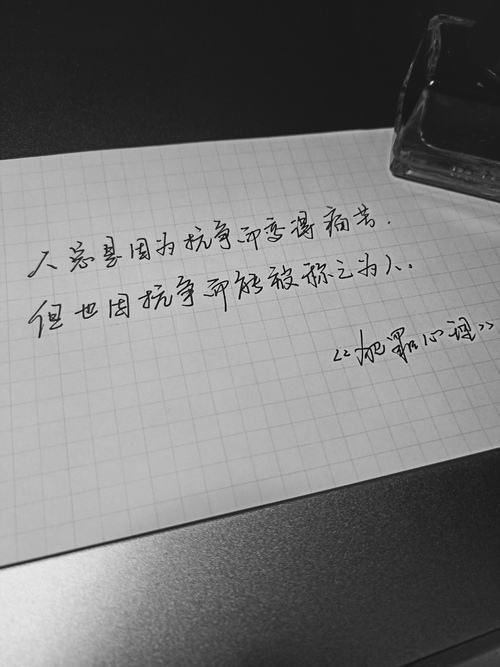 人总是因为抗争而变得痛苦.
但也因抗争而能被称之为人.
《犯罪心理》